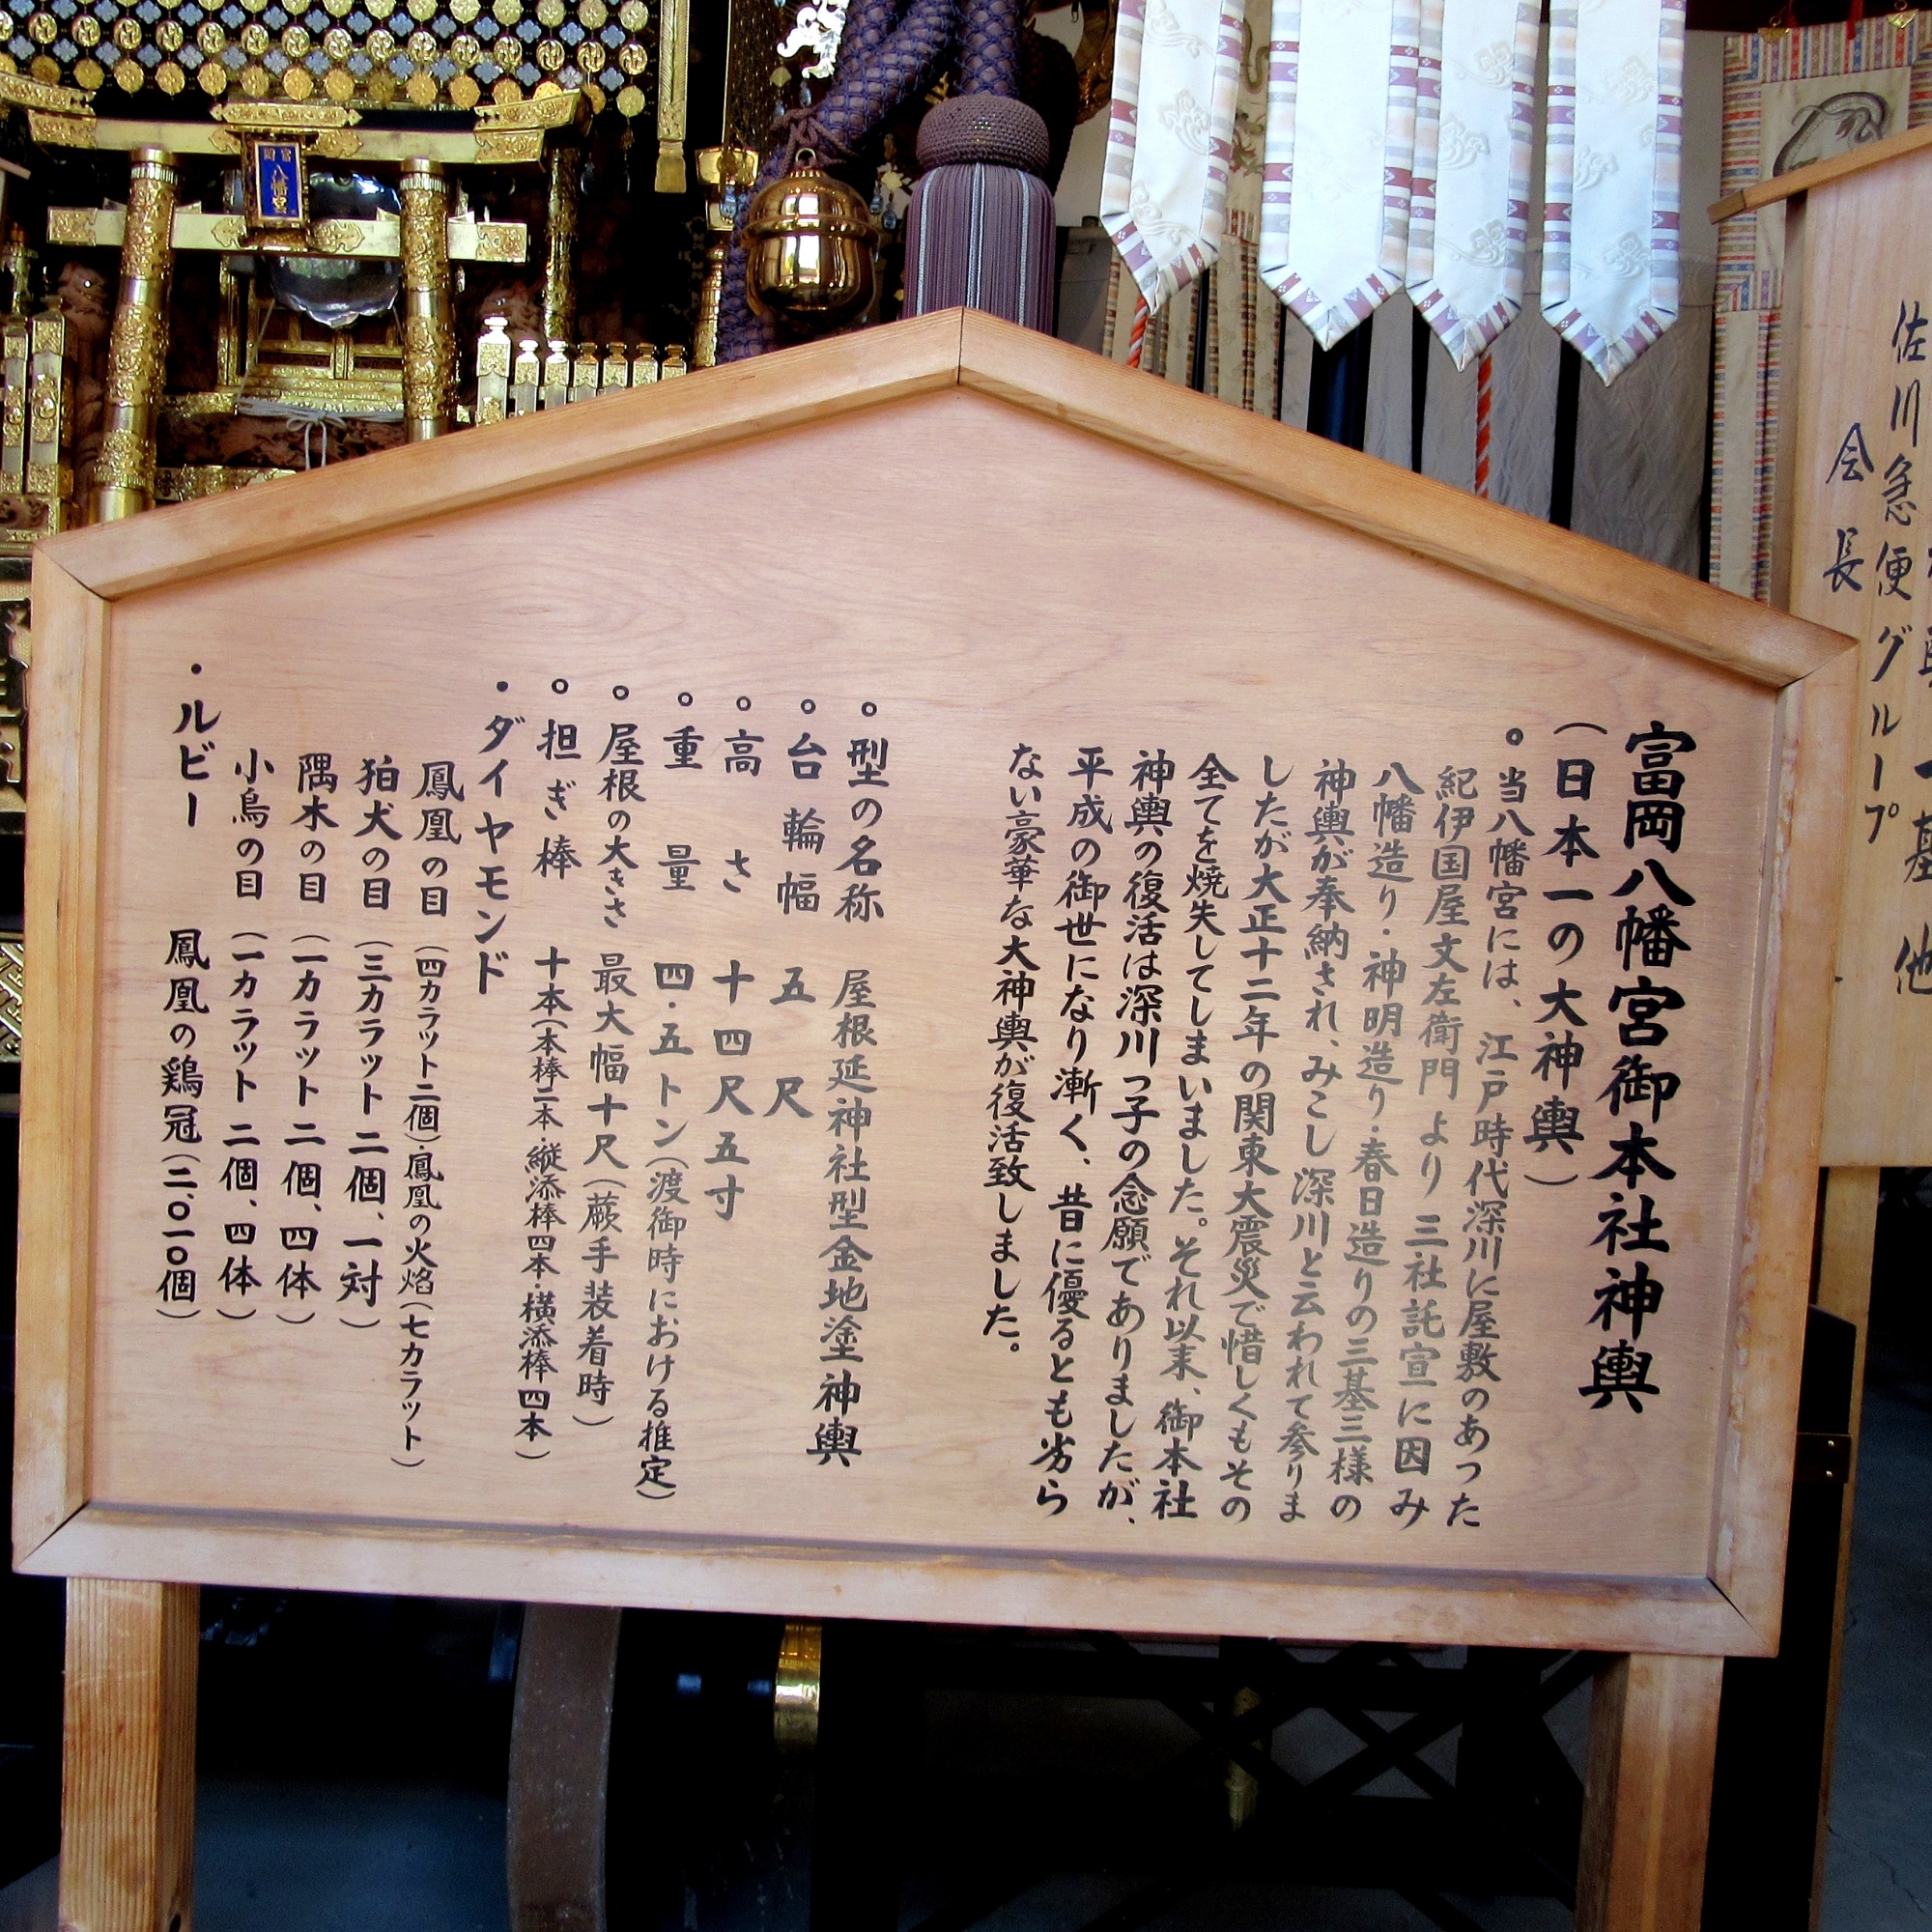 富岡八幡宮御本社神輿
（日本一の大神輿）
。当八幡宮には、江戸時代深川に屋敷のあった
紀伊国屋文左衛門より三社託宣に因み
八幡造り・神明造り・春日造りの三基三様の
神輿が奉納され、みこし深川と云われて参りま
したが大正十二年の関東大震災で惜しくもその
全てを焼失してしまいました。それ以来、御本社
神輿の復活は深川っ子の念願でありましたが、
平成の御世になり漸く、昔に優るとも劣ら
ない豪華な大神輿が復活致しました。
。型の名称 屋根延神社型金地塗神輿
。台輪幅 五尺
。高さ 十四尺五寸
。重量 四・五トン（渡御時における推定）
。屋根の大きさ 最大幅十尺（蕨手装着時）
。担ぎ棒 十本（本棒二本・縦添棒四本・横添棒四本）
・ダイヤモンド
鳳凰の目（四カラット二個）・鳳凰の火焰（七カラット）
狛犬の目（三カラット二個、一対）
隅木の目（一カラット二個、四体）
小鳥の目（一カラット二個、四体）
・ルビー 鳳凰の鶏冠（二、〇一〇個）
佐川急便グループ
会長
八幡宮